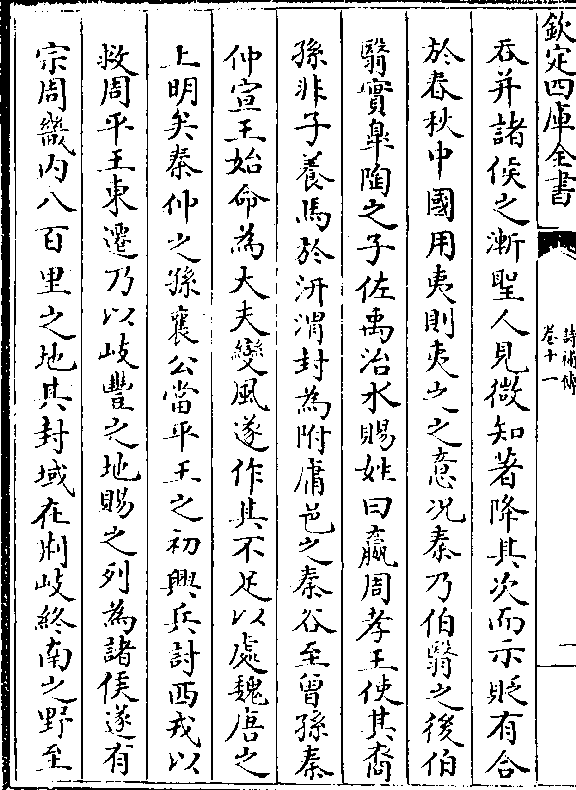 欽定四庫全書
詩補傳
卷十一
吞并諸侯之漸聖人見微知著降其次而示貶有合
於春秋中國用夷則夷之之意况秦乃伯翳之後伯
翳實臯陶之子佐禹治水賜姓曰嬴周孝王使其裔
孫非子養馬於汧渭封為附庸邑之秦谷至曾孫秦
仲宣王始命為大夫變風遂作其不足以處魏唐之
上明矣秦仲之孫襄公當平王之初興兵討西戎以
救周平王東遷乃以岐豐之地賜之列為諸侯遂有
宗周畿内八百里之地其封域在荆岐終南之野至